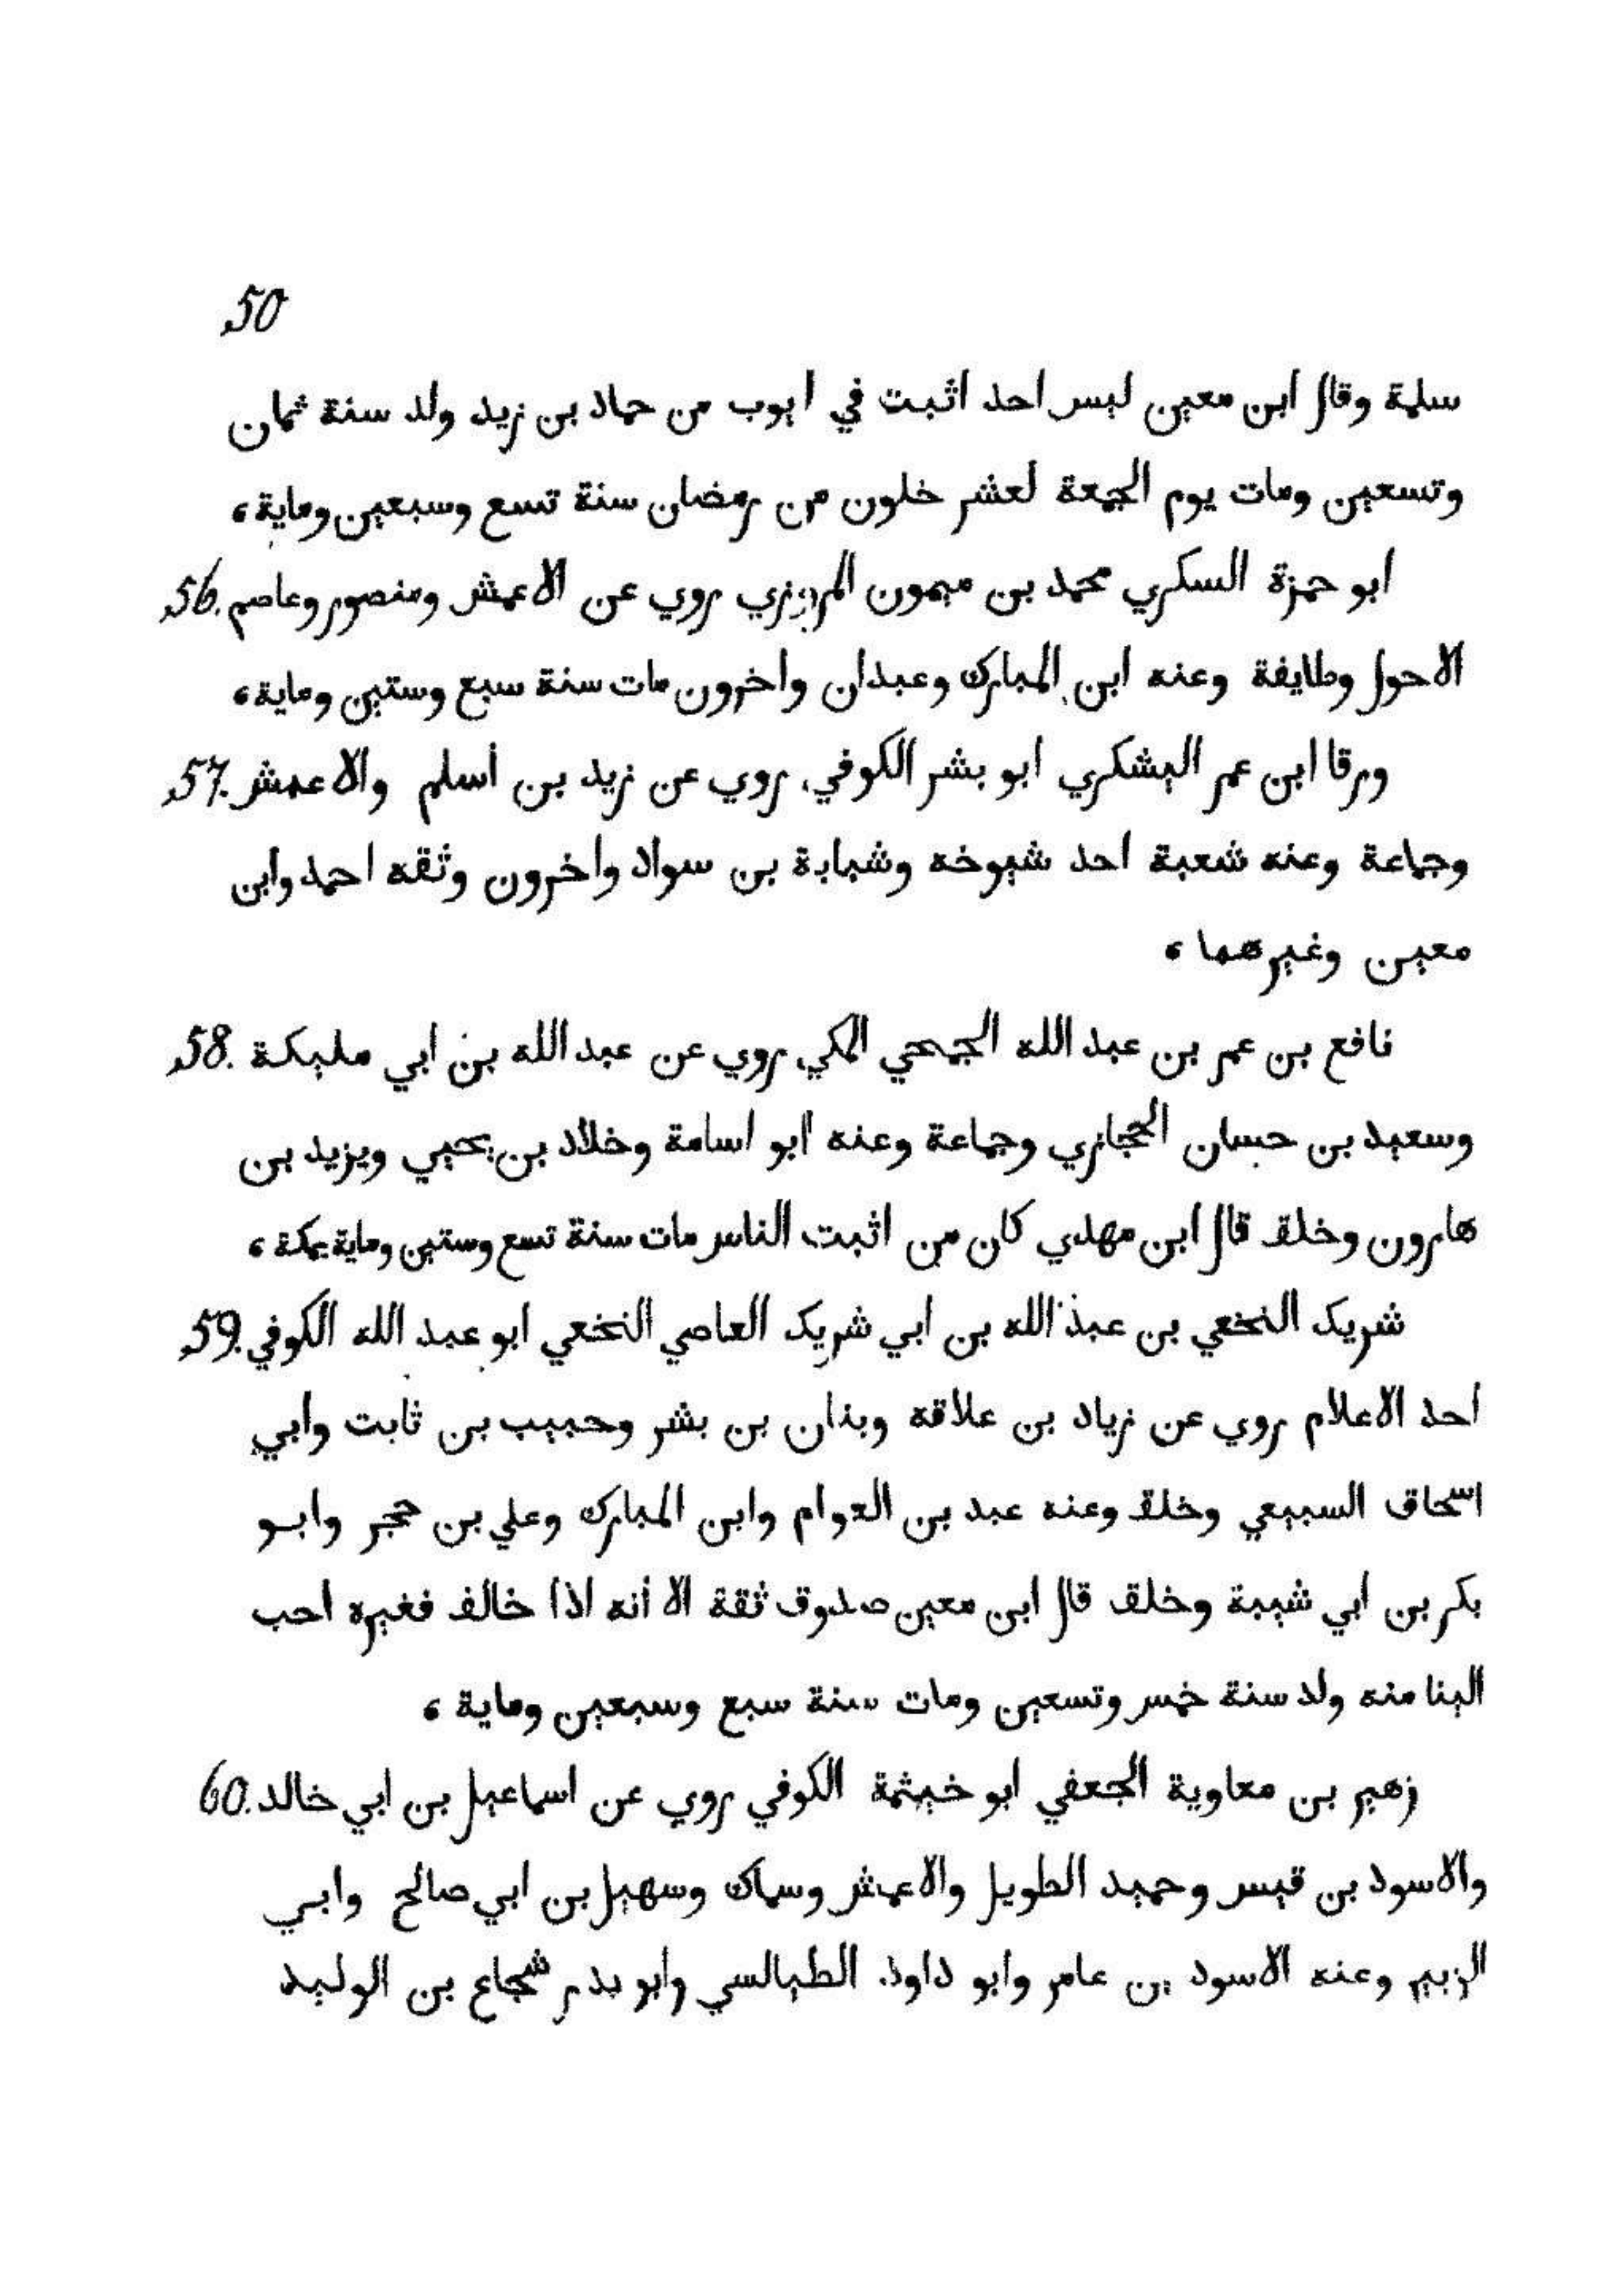 50
سلمة وقال ابن معين ليس احد اثبت في ايوب من حماد بن زيد ولد سنة ثمان
وتسعين ومات يوم الجمعة لعشر خلون من رمضان سنة تسع وسبعين وماية،
ابو حمزة السكري محمد بن ميمون المروزي روي عن الاعمش ومنصور وعاصم .56
الاحول وطايفة وعنه ابن المبارك وعبدان واخرون مات سنة سبع وستين وماية،
ورقا ابن عمر اليشكري ابو بشر الكوفي روي عن زيد بن اسلم والاعمش .57
وجماعة وعنه شعبة احد شيوخه وشبابة بن سواد واخرون وثقه احمد وابن
معين وغيرهما،
نافع بن عمر بن عبد الله الجمحي المكي روي عن عبد الله بن ابي مليكة .58
وسعيد بن حسان الحجازي وجماعة وعنه ابو اسامة وخلاد بن يحيي ويزيد بن
هارون وخلق قال ابن مهدي كان من اثبت الناس مات سنة تسع وستين وماية بمكة،
شريك النخعي بن عبد الله بن ابي شريك العاصي النخعي ابو عبد الله الكوفي .59
احد الاعلام روي عن زياد بن علاقه وبنان بن بشر وحبيب بن ثابت وابي
اسحاق السبيعي وخلق وعنه عبد بن العوام وابن المبارك وعلي بن حجر وابو
بكر بن ابي شيبة وخلق قال ابن معين صدوق ثقة الا أنه اذا خالف فغيره احب
الينا منه ولد سنة خمس وتسعين ومات سنة سبع وسبعين وماية،
زهير بن معاوية الجعفي ابو خيثمة الكوفي روي عن اسماعيل بن ابي خالد .60
والاسود بن قيس وحميد الطويل والاعمش وسماك وسهيل بن ابي صالح وابي
الزبير وعنه الاسود بن عامر وابو داود الطيالسي وابو بدر شجاع بن الوليد